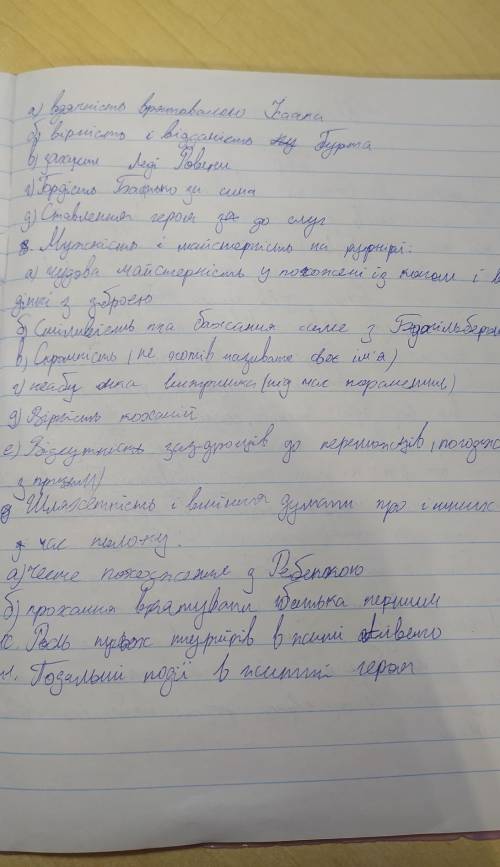 а) вдячність врятованого Ісаака
б) вірність і відданість Гурта
в) захист Леді Ровени
г) Гордість батько за сина
д) Ставлення героя до слуг
3. Мужність і майстерність на турнірі:
а) чудова майстерність у поводжені із конем і в
зброєю
б) Сміливість та бажання саме з Буагільбером
в) Скромність (не хотів називати своє ім'я)
г) неаби яка витримка (під час поранення)
д) Вірність коханій
е) Відсутність заздрощів до переможців (
з принцом)
Шляхетність і вміння думати про інших
час полону.
а) Чесне поводження з Ребеккою
б) прохання врятувати батька першим
Роль турнірів в житті Айвенго
Подальші події в житті героя